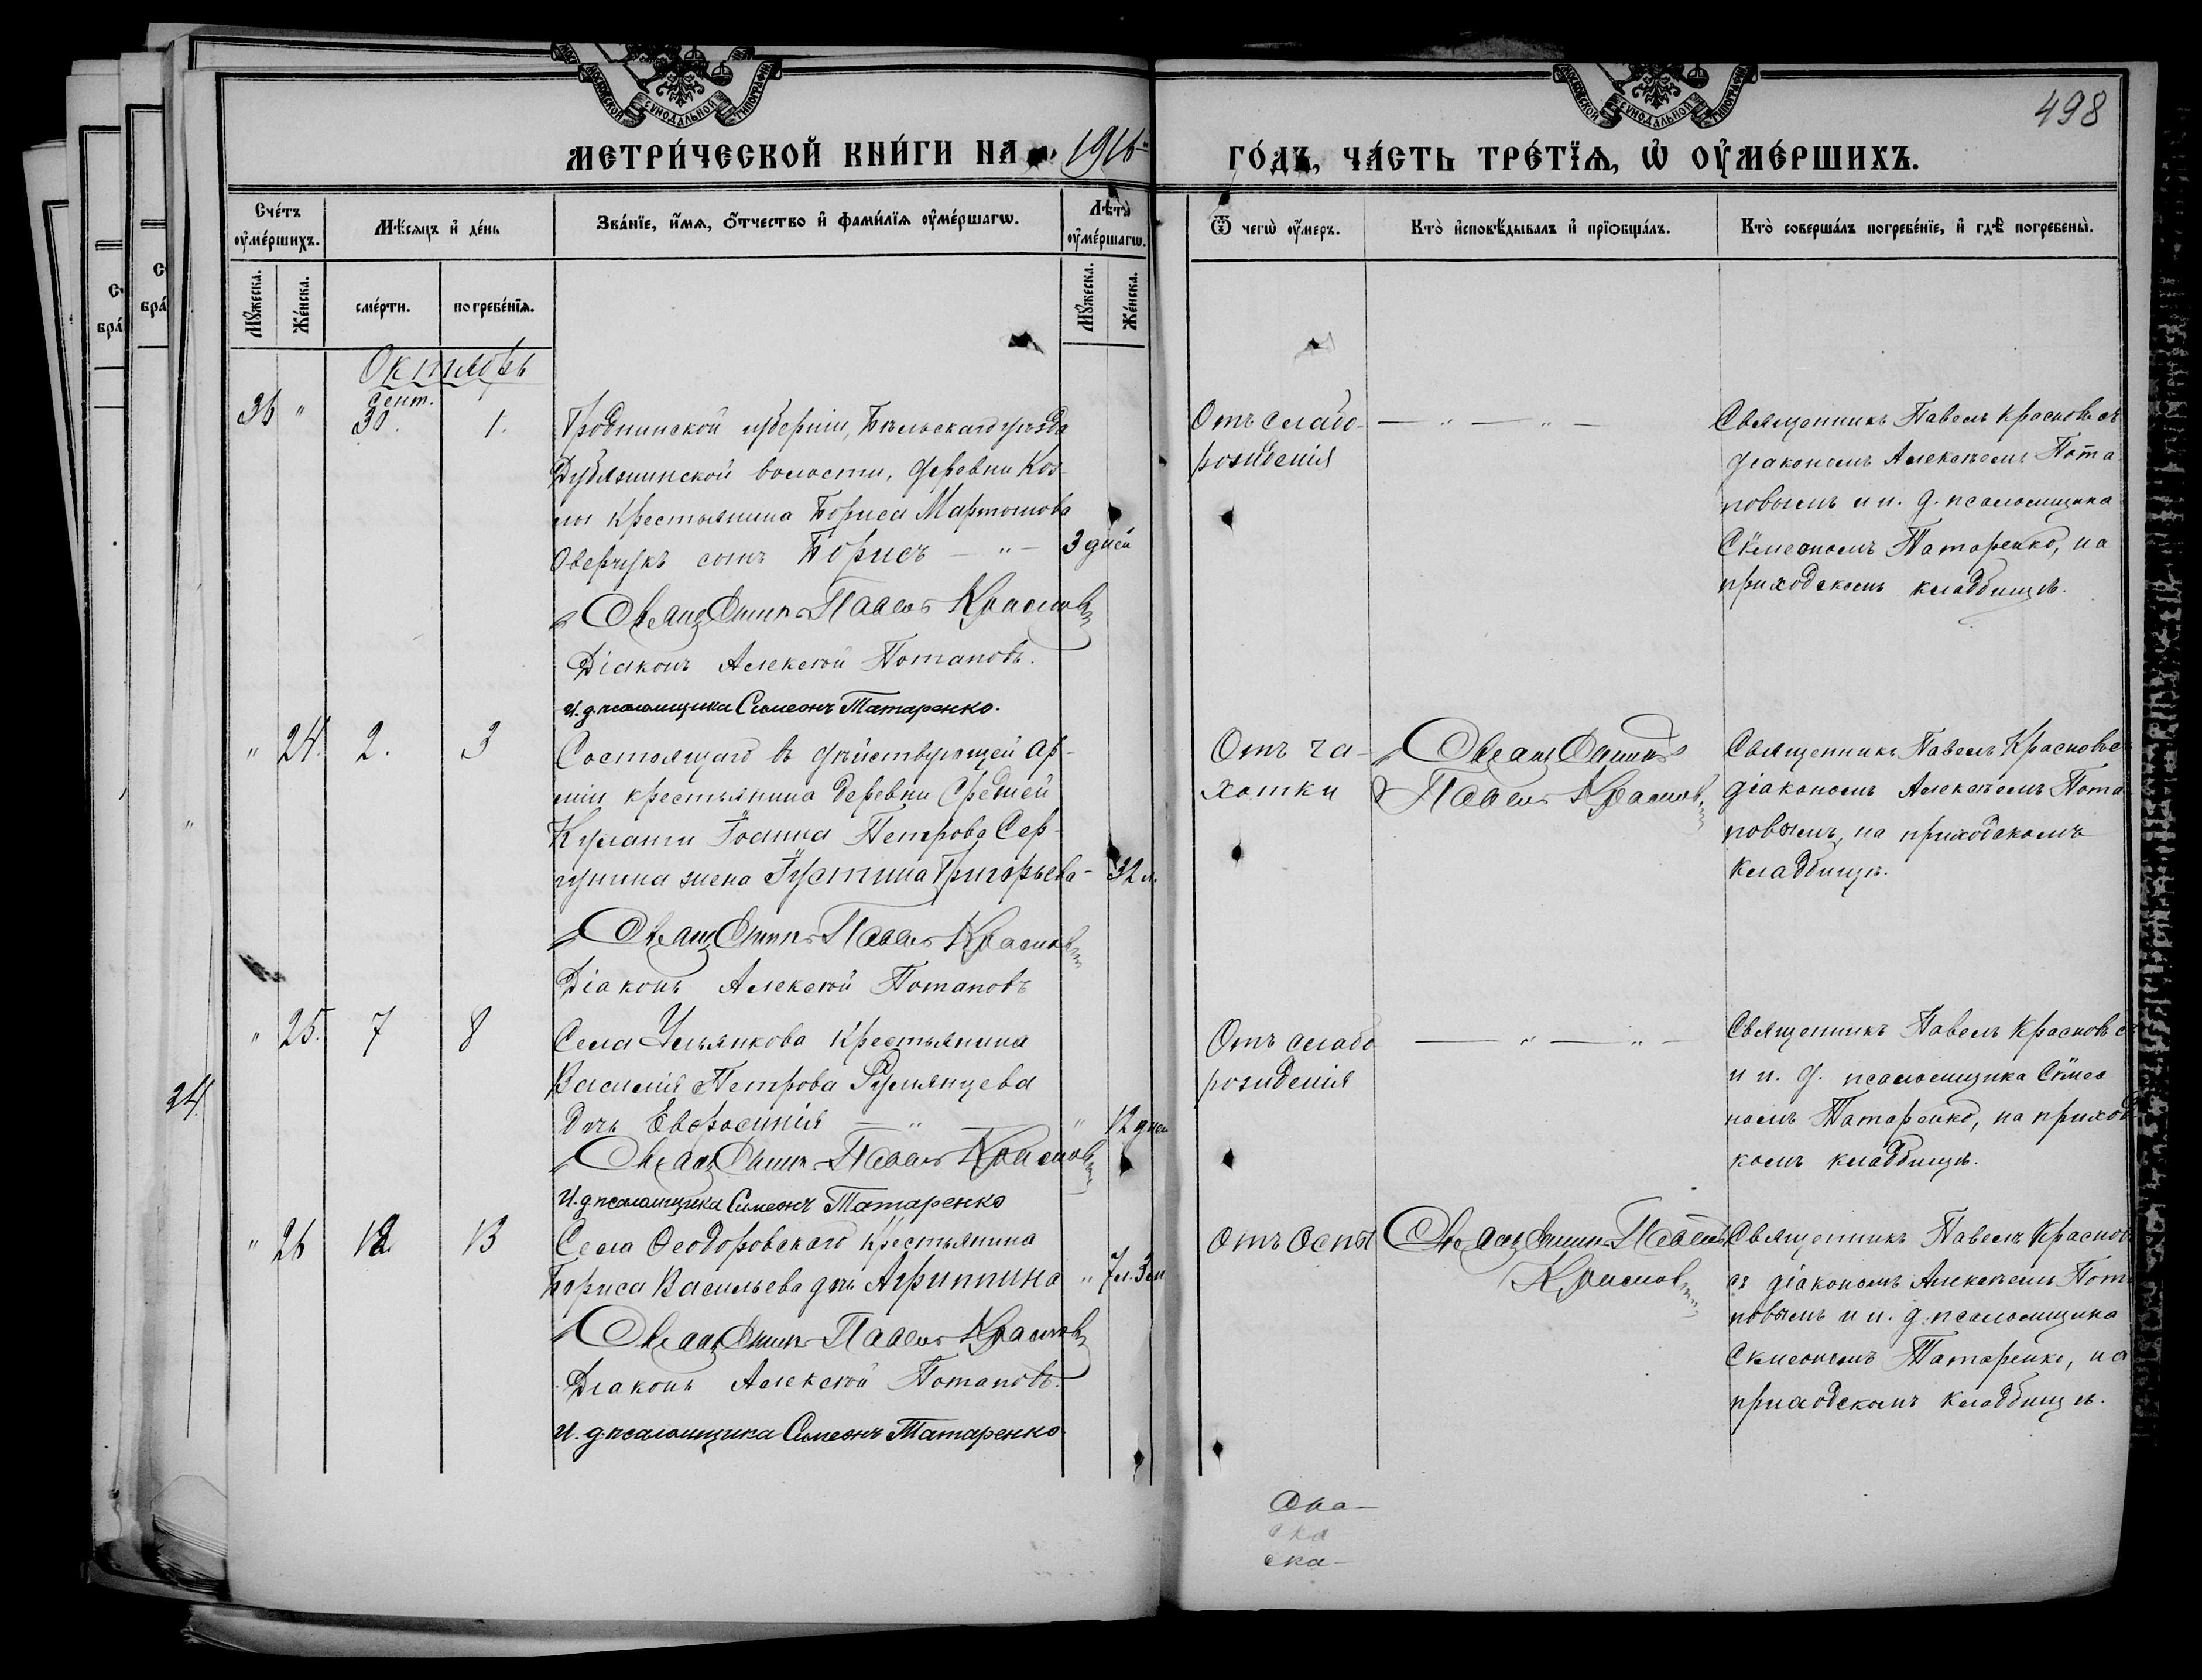 МОСКОВСКОЙ СѴНОДАЛЬНОЙ ТИПОГРАФІИ
МОСКОВСКОЙ СѴНОДАЛЬНОЙ ТИПОГРАФІИ
498
МЕТРИ́ЧЕСКОЙ КНИ́ГИ НА 1916
ГО́ДЪ, ЧА́СТЬ ТРЕ́ТЇѦ, Ѡ҆ ОУ҆МЕ́РШИХЪ.
Сче́тъ оу҆ме́ршихъ.
Мѣ́сяцъ и҆ де́нь
Зва́нїе, и҆́мя, ѻ҆́тчество и҆ фами́лїя оу҆ме́ршагѡ.
Лѣ́та оу҆ме́ршагѡ.
Ѿ чегѡ̀ оу҆́меръ.
Кто̀ и҆сповѣ́дывалъ и҆ прїѻбща́лъ.
Кто̀ соверша́лъ погребе́нїе, и҆ гдѣ̀ погребены̀.
Мꙋ́жеска.
Же́нска.
сме́рти.
погребе́нїя.
Мꙋ́жеска.
Же́нска.
Октябрь
36 " Сент. 30. 1.
Гродненской губерніи, Бѣльскаго уѣзда
Дубяжинской волости, деревни Коз-
лы крестьянина Бориса Мартинова
Оверчукъ сынъ Борисъ — " — 3 дней
Священникъ Павелъ Красновъ
Діаконъ Алексѣй Потаповъ.
И. д. псаломщика Симеонъ Татаренко.
Отъ слабо-
рожденія
— " — " —
Священникъ Павелъ Красновъ съ
діакономъ Алексѣемъ Пота
повымъ и и. д. псаломщика
Сѵмеономъ Татаренко, на
приходскомъ кладбищѣ.
" 24. 2. 3
Состоящаго въ дѣйствующей ар-
міи крестьянина деревни Средней
Іоанна Петрова Сер-
гунина жена Іустина Григорьева - 32 л.
Священникъ Павелъ Красновъ
Діаконъ Алексѣй Потаповъ
Отъ ча-
хотки
Священникъ
Павелъ Красновъ
Священникъ Павелъ Красновъ съ
діакономъ Алексѣемъ Пота
повымъ, на приходскомъ
кладбищѣ.
" 25. 7 8
Села Ульянкова крестьянина
Василія Петрова Румянцева
дочь Евфросинія — " — " 12 дней
Священникъ Павелъ Красновъ
И. д. псаломщика Симеонъ Татаренко
Отъ слабо
рожденія
— " — " —
Священникъ Павелъ Красновъ съ
и и. д. псаломщика Сѵмео
номъ Татаренко, на приход
комъ кладбищѣ.
24
" 26 12 13
Села Ѳеодоровскаго крестьянина
Бориса Васильева дочь Агриппина " 7 л. 3 м
Священникъ Павелъ Красновъ
Діаконъ Алексѣй Потаповъ.
И. д. псаломщика Симеонъ Татаренко.
Отъ оспы
Священникъ Павелъ
Красновъ
Священникъ Павелъ Краснов
съ діакономъ Алексѣемъ Пота
повымъ и и. д. псаломщика
Сѵмеономъ Татаренко, на
приходскомъ кладбищѣ.
ска-